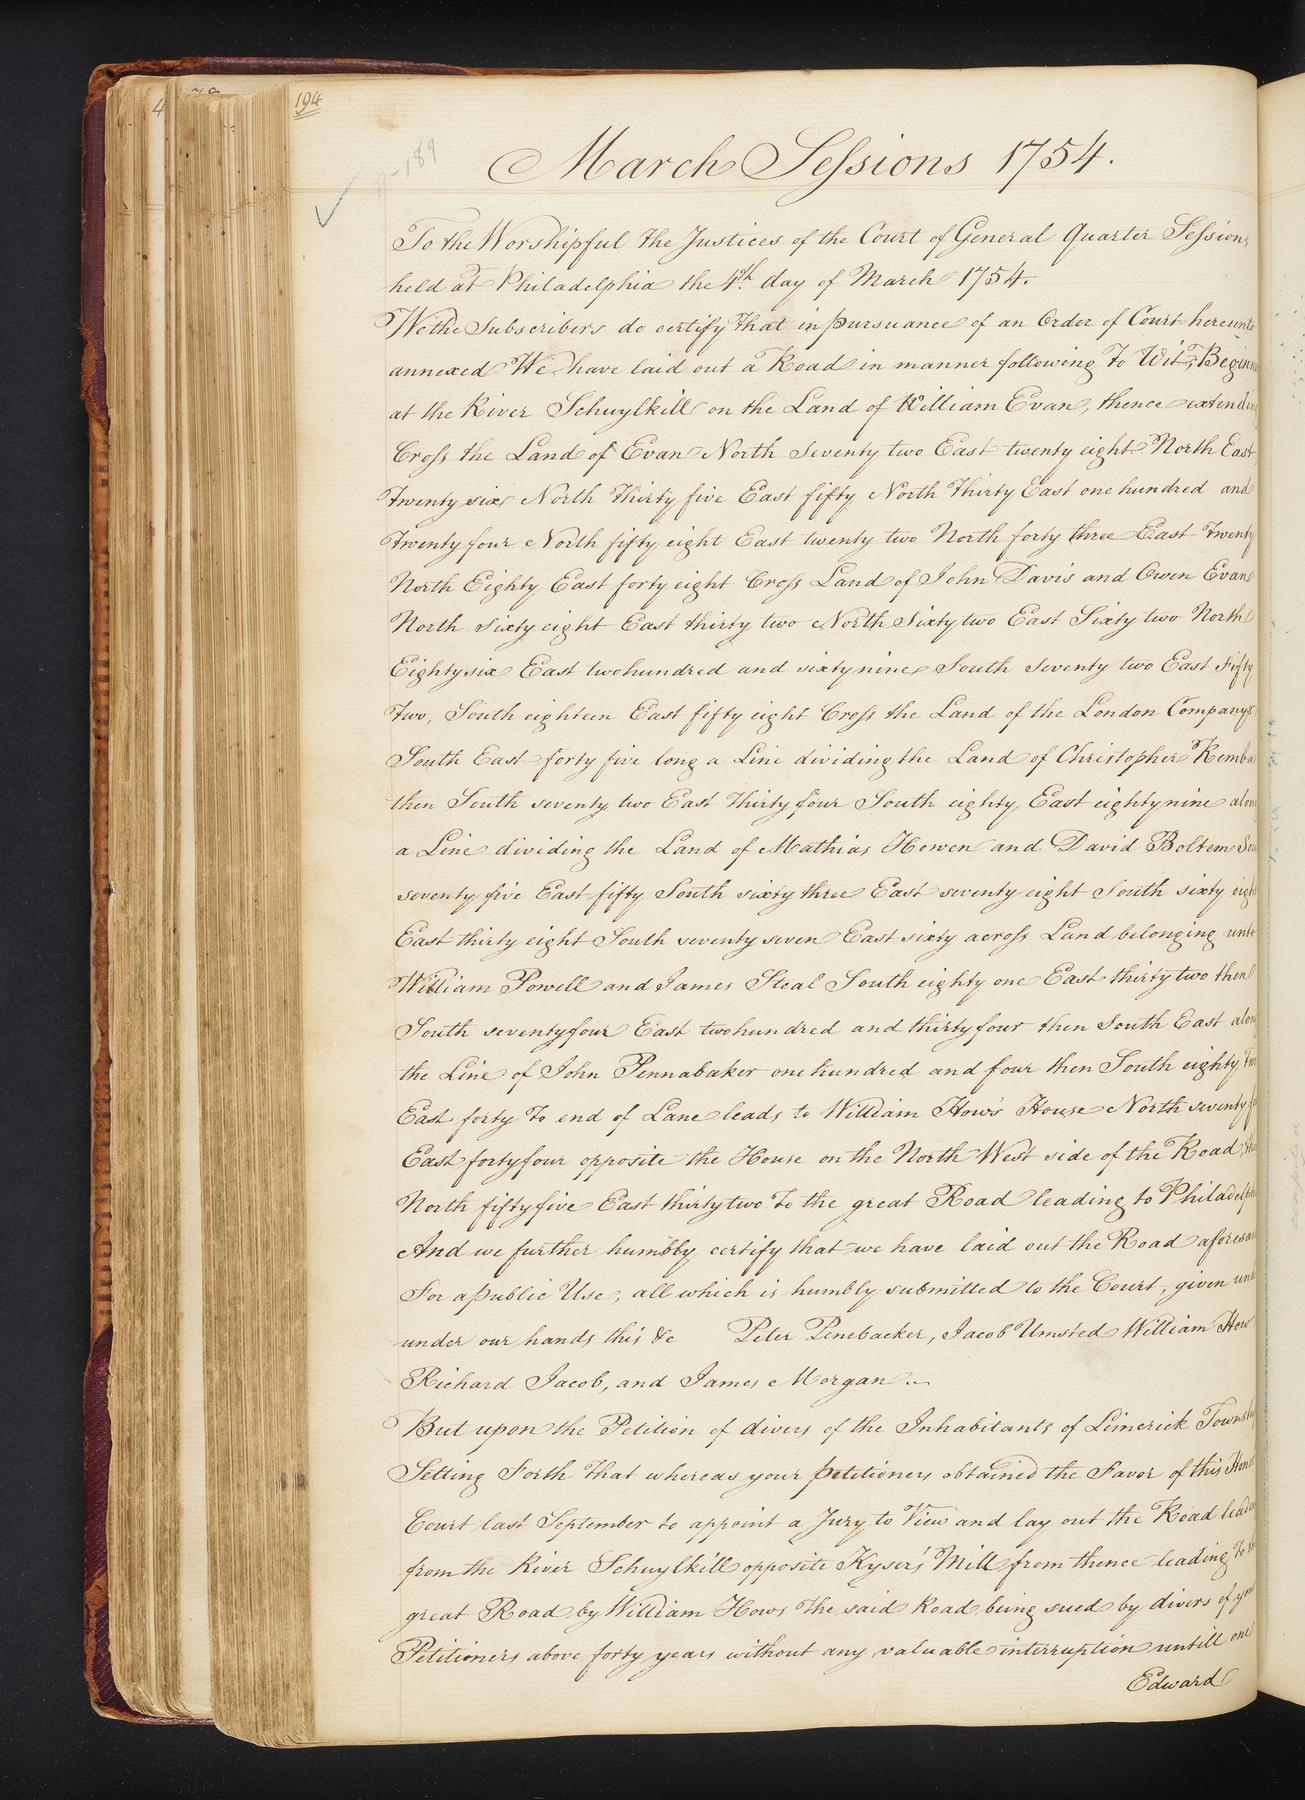 194
p-189
March Sessions 1754.
To the Worshipful the Justices of the Court of General Quarter Sessions
held at Philadelphia the 4th day of March 1754.
We the Subscribers do certify that in pursuance of an Order of Court hereunto
annexed We have laid out a Road in manner following To Wit, Beginn
at the River Schuylkill on the Land of William Evan, thence extending
Cross the Land of Evan North Seventy two East twenty eight North East
Twenty six North Thirty five East fifty North Thirty East one hundred and
Twenty four North fifty eight East twenty two North forty three East Twenty
North Eighty East forty eight Cross Land of John Davis and Owen Evan
North sixty eight East thirty two North Sixty two East Sixty two North
Eighty six East two hundred and sixty nine South Seventy two East Fifty
Two, South eighteen East fifty eight Cross the Land of the London Companys
South East forty five long a Line dividing the Land of Christopher Remba
then South seventy two East Thirty four South eighty East eighty nine along
a Line dividing the Land of Mathias Howen and David Boltem Sou
seventy five East fifty South sixty three East seventy eight South sixty eigh
East thirty eight South seventy seven East sixty across Land belonging unto
William Powell and James Steal South eighty one East thirty two then
South seventy four East two hundred and thirty four then South East along
the Line of John Pennabaker one hundred and four then South eighty two
East forty To end of Lane leads to William How's House North seventy
East forty four opposite the House on the North West side of the Road,
North fifty five East thirty two To the great Road leading to Philadelph
And we further humbly certify that we have laid out the Road aforesai
For a public Use, all which is humbly submitted to the Court, given und
under our hands this &c Peter Penebacker, Jacob Umsted William How
Richard Jacob, and James Morgan
But upon the Petition of divers of the Inhabitants of Limerick Townshi
Setting Forth That whereas your petitioners obtained the Favor of this Hono
Court last September to appoint a Jury to View and lay out the Road leadin
from the River Schuylkill opposite Kyser's Mill from thence leading To th
great Road by William Hows The said Road being sued by divers of you
Petitioners above forty years without any valuable interruption untill one
Edward